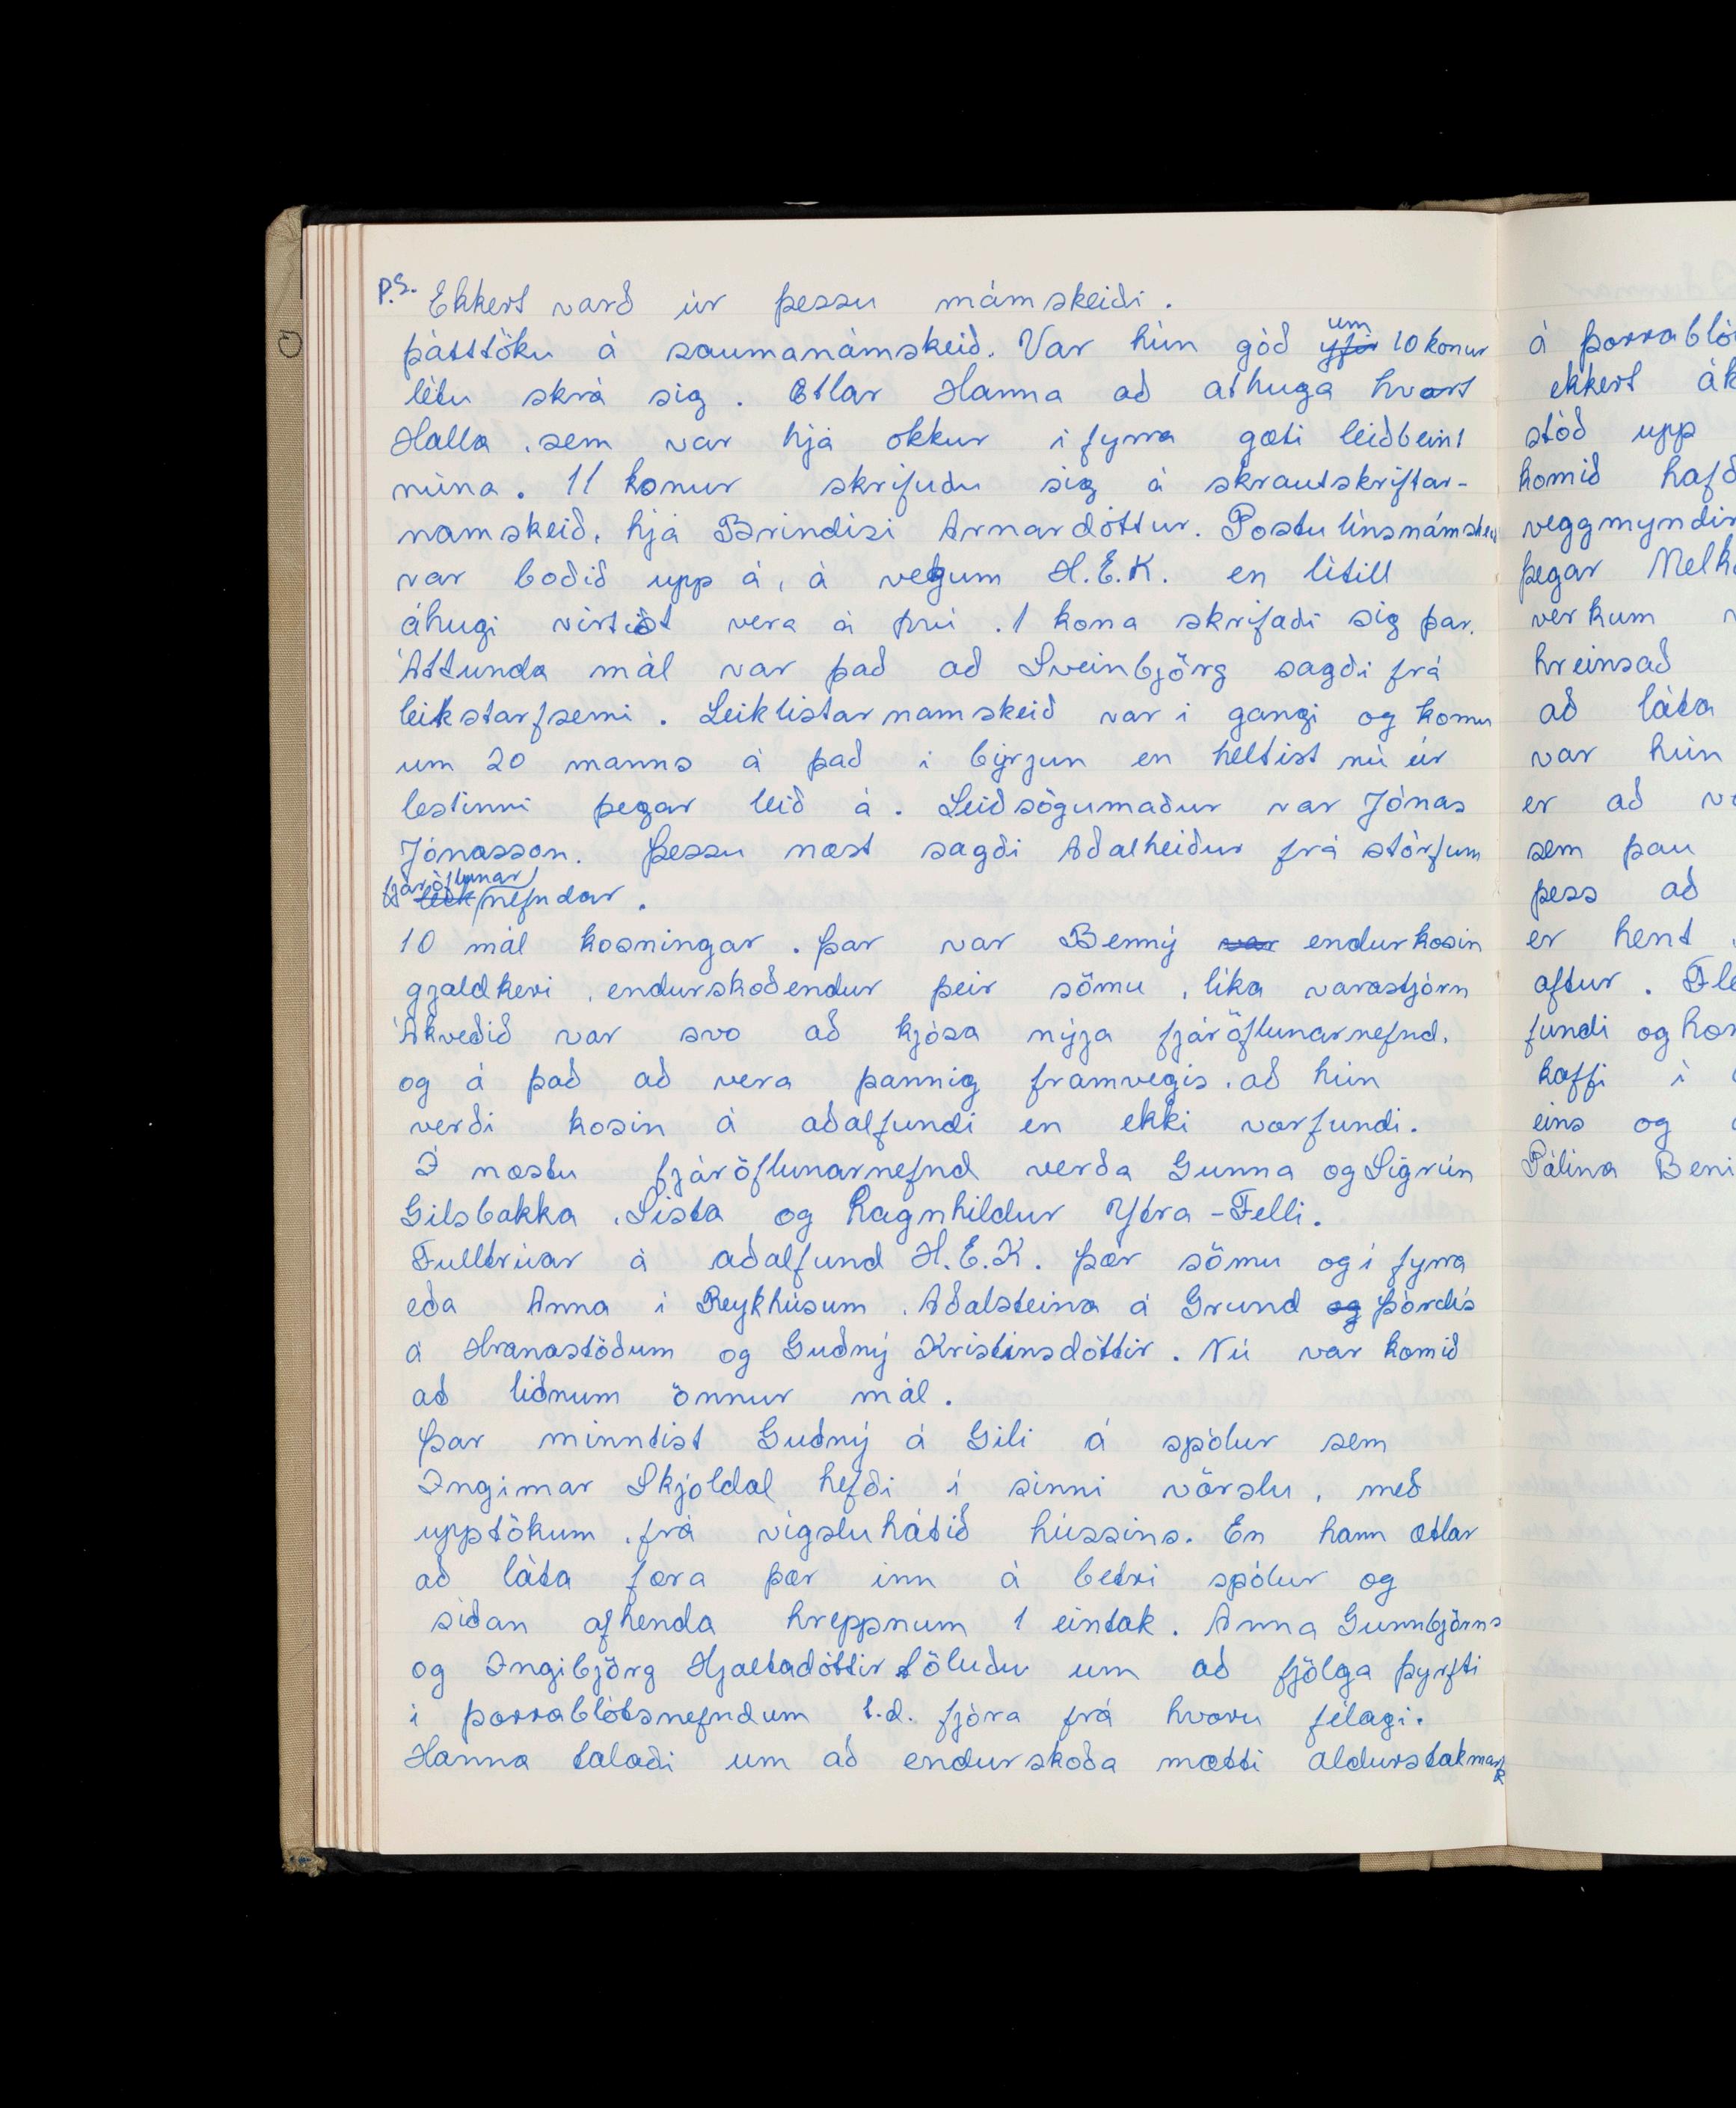 P.S. Ekkert varð úr þessu námskeiði.
þátttöku á saumanámskeið. Var hún góð um yfir 10 konur
létu skrá sig. Etlar Hanna að athuga hvort
Halla, sem var hjá okkur í fyrra gæti leiðbeint
núna. 11 konur skrifuðu sig á skrautskriftar-
namskeið, hjá Brindísi Arnardóttur. Postulínsnámskeið
var boðið upp á, á vegum H.E.K. en lítill
áhugi virtist vera á því. 1 kona skrifaði sig þar.
Áttunda mál var það að Sveinbjörg sagði frá
leikstarfsemi. Leiklistarnamskeið var í gangi og komu
um 20 manns á það í byrjun en heltist nú úr
lestinni þegar leið á. Leiðsögumaður var Jónas
Jónasson. Þessu næst sagði Aðalheiður frá störfum
fjáröflunar
leik nefndar.
10 mál kosningar. Þar var Benný var endurkosin
gjaldkeri, endurskoðendur þeir sömu, líka varastjórn
Ákveðið var svo að kjósa nýja fjáröflunarnefnd,
og á það að vera þannig framvegis, að hún
verði kosin á aðalfundi en ekki vorfundi.
I næstu fjáröflunarnefnd verða Gunna og Sigrún
Gilsbakka, Sista og Ragnhildur Ytra-Felli.
Fulltrúar á aðalfund H.E.K. þær sömu og í fyrra
eða Anna í Reykhúsum, Aðalsteina á Grund og Þórdís
á Hranastöðum og Guðný Kristinsdóttir. Nú var komið
að liðnum önnur mál.
Þar minntist Guðný á Gili á spólur sem
Ingimar Skjoldal hefði í sinni vörslu, með
upptökum, frá vígsluhátið hússins. En hann ætlar
að láta færa þær inn á betri spólur og
síðan afhenda hreppnum 1 eintak. Anna Gunnbjörns
og Ingibjörg Hjaltadóttir töluðu um að fjölga þyrfti
í þorrablótsnefndum t.d. fjóra frá hvoru félagi.
Hanna talaði um að endurskoða mætti aldurstakmark
á þorrabló
ekkert ák
stóð upp
komið hafð
veggmyndir
þegar Melk
verkum
hreinsað
að láta
var hún
er að
sem þau
þess að
er hent
aftur. Fle
fundi og
kaffi í
eins og
Pálína Beni